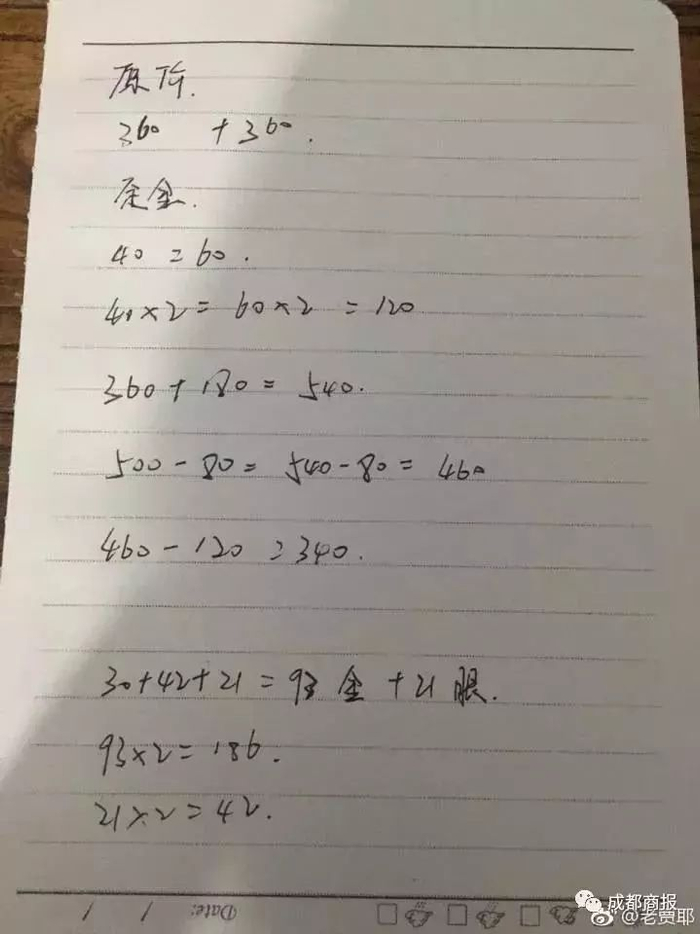 原价.
360 +360.
定金.
40 = 60.
40×2= 60×2 = 120
360+180= 540.
500-80= 540-80= 460
460-120 =340.
30+42+21=93 金 +21 眼.
93×2=186.
21×2=42.
Date: / /
成都商报
@老贾耶